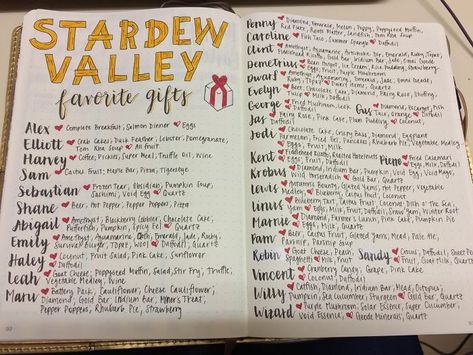 STARDEW
VALLEY
favorite gifts
Alex ♥ Complete Breakfast, Salmon Dinner ♥ Eggs
Elliott ♥ Crab Cakes, Duck Feather, Lobster, Pomegranate,
Tom Kha Soup ♥ All fruit
Harvey ♥ Coffee, Pickles, Super Meal, Truffle Oil, Wine
Sam ♥ Cactus Fruit, Maple Bar, Pizza, Tigerseye
Sebastian ♥ Frozen Tear, Obsidian, Pumpkin Soup,
Sashimi, Void Egg ♥ Quartz
Shane ♥ Beer, Hot Pepper, Pepper Poppers, Pizza
Abigail ♥ Amethyst, Blackberry Cobbler, Chocolate Cake,
Pufferfish, Pumpkin, Spicy Eel ♥ Quartz
Emily ♥ Amethyst, Aquamarine, Cloth, Emerald, Jade, Ruby,
Survival Burger, Topaz, Wool ♥ Daffodil, Quartz
Haley ♥ Coconut, Fruit Salad, Pink Cake, Sunflower
♥ Daffodil
Leah ♥ Goat Cheese, Poppyseed Muffin, Salad, Stir Fry, Truffle,
Vegetable Medley, Wine
Maru ♥ Battery Pack, Cauliflower, Cheese Cauliflower,
Diamond, Gold Bar, Iridium Bar, Miner's Treat,
Pepper Poppers, Rhubarb Pie, Strawberry
Penny ♥ Diamond, Emerald, Melon, Poppy, Poppyseed Muffin,
Red Plate, Roots Platter, Sandfish, Tom Kha Soup
Caroline ♥ Fish Taco, Summer Spangle ♥ Daffodil
Clint ♥ Amethyst, Aquamarine, Artichoke Dip, Emerald, Ruby, Topaz,
Gold Bar, Iridium Bar, Jade, Omni Geode
Demetrius ♥ Bean Hotpot, Ice Cream, Rice Pudding, Strawberry,
♥ Eggs, Fruit, Purple Mushroom
Dwarf ♥ Amethyst, Aquamarine, Emerald, Jade, Omni Geode,
Ruby, Topaz ♥ Dwarf Items, Quartz
Evelyn ♥ Beet, Chocolate Cake, Diamond, Fairy Rose, Stuffing,
Tulip ♥ Milk, Daffodil
George ♥ Fried Mushroom, Leek
♥ Daffodil
Gus ♥ Diamond, Escargot, Fish
Taco, Orange ♥ Daffodil
Jas ♥ Fairy Rose, Pink Cake, Plum Pudding ♥ Coconut,
Daffodil
Jodi ♥ Chocolate Cake, Crispy Bass, Diamond, Eggplant
Parmesan, Fried Eel, Pancakes, Rhubarb Pie, Vegetable Medley
♥ Eggs, Fruit, Milk
Kent ♥ Fiddlehead Risotto, Roasted Hazelnuts
♥ Eggs, Fruit, Daffodil
Pierre ♥ Fried Calamari
♥ Eggs, Milk, Daffodil
Krobus ♥ Diamond, Iridium Bar, Pumpkin, Void Egg, Void Mayo,
Wild Horseradish ♥ Gold Bar, Quartz
Lewis ♥ Autumn's Bounty, Glazed Yams, Hot Pepper, Vegetable
Medley ♥ Blueberry, Cactus Fruit, Coconut
Linus ♥ Blueberry Tart, Cactus Fruit, Coconut, Dish o' the Sea,
Yam ♥ Eggs, Fruit, Milk, Daffodil,
Marnie ♥ Diamond, Farmer's Lunch, Pink Cake, Pumpkin Pie
♥ Eggs, Milk, Quartz
Pam ♥ Beer, Cactus Fruit, Glazed Yams, Mead, Pale Ale,
Parsnip, Parsnip Soup
Robin ♥ Goat Cheese, Peach,
Spaghetti ♥ Milk, Fruit
Sandy ♥ Crocus, Daffodil, Sweet Pea
Vincent ♥ Cranberry Candy, Grape, Pink Cake
♥ Coconut, Daffodil
Willy ♥ Catfish, Diamond, Iridium Bar, Mead, Octopus,
Pumpkin, Sea Cucumber, Sturgeon ♥ Gold Bar, Quartz
Wizard ♥ Purple Mushroom, Solar Essence, Super Cucumber,
Void Essence, ♥ Geode Minerals, Quartz